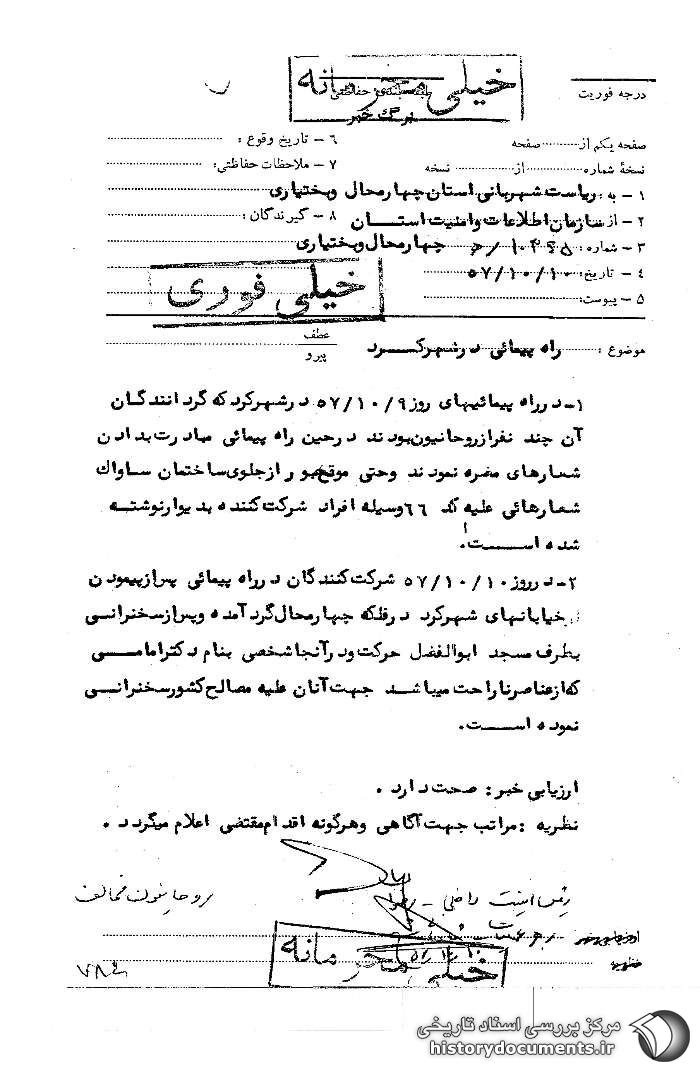 خیلی محرمانه
درجه فوریت
طبقه‌بندی حفاظتی
برگ خبر
صفحه یکم از صفحه
۶ - تاریخ وقوع :
نسخهٔ شماره از نسخه
۷ - ملاحظات حفاظتی:
۱ - به : ریاست شهربانی استان چهارمحال وبختیاری
۲ - از سازمان اطلاعات وامنیت استان
۸ - گیرندگان :
۳ - شماره : چهارمحال وبختیاری
۴ - تاریخ: ۵۷/۱۰/۱۰
خیلی فوری
۵ - پیوست:
موضوع : راه پیمائی در شهرکرد
عطف
پیرو
۱- در راه پیمائیهای روز ۵۷/۱۰/۹ در شهرکرد که گردانندگان
آن چند نفر از روحانیون بودند در حین راه پیمائی مبادرت بدادن
شعارهای مضره نمودند وحتی موقع عبور از جلوی ساختمان ساواک
شعارهائی علیه کد ۶۶ وسیله افراد شرکت کننده بدیوار نوشته
شده است.
۲- در روز ۵۷/۱۰/۱۰ شرکت کنندگان در راه پیمائی پس از پیمودن
خیابانهای شهرکرد در فلکه چهارمحال گرد آمده و پس از سخنرانی
بطرف مسجد ابوالفضل حرکت ودر آنجا شخصی بنام دکتر امامی
که از عناصر ناراحت میباشد جهت آنان علیه مصالح کشور سخنرانی
نموده است.
ارزیابی خبر : صحت دارد .
نظریه : مراتب جهت آگاهی وهرگونه اقدام مقتضی اعلام میگردد .
روحانیون مخالف
خیلی محرمانه
مرکز بررسی اسناد تاریخی
historydocuments.ir